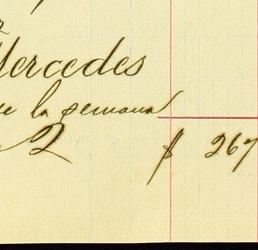 Mercedes
la semana
2 $ 267